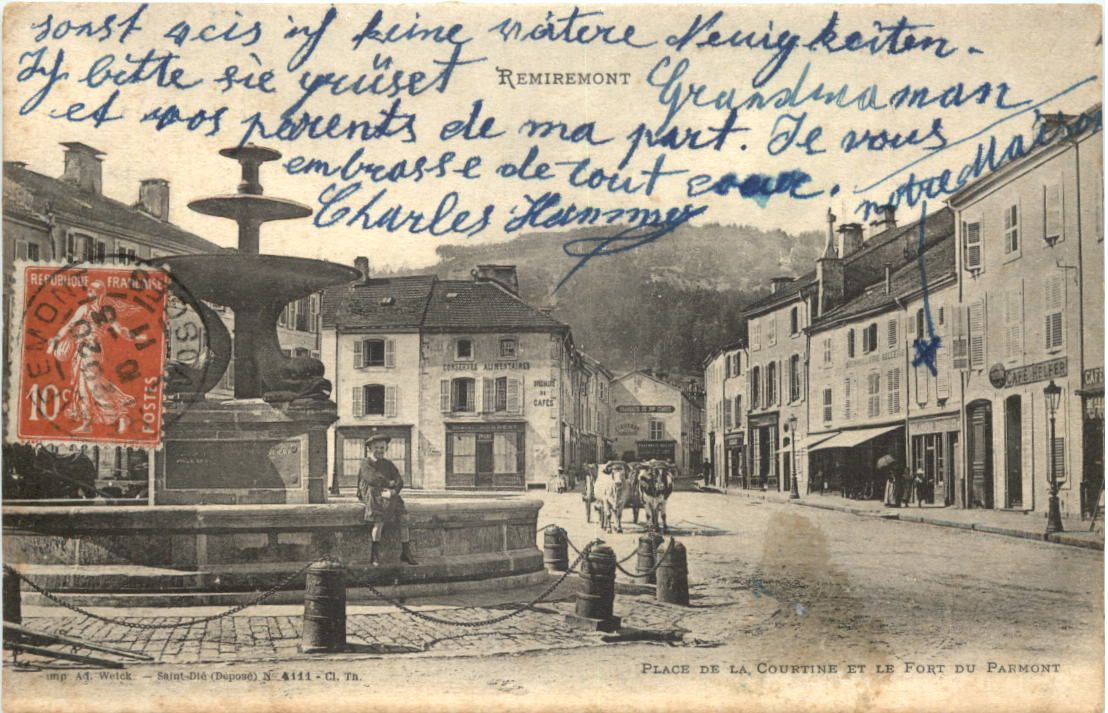 sonst weis ich keine weitere Neuigkeiten.
Ich bitte sie grüset Grandmaman
et vos parents de ma part. Je vous
embrasse de tout coeur.
Charles
notre Maison
REMIREMONT
RÉPUBLIQUE FRANÇAISE
10c POSTES
CONSERVES ALIMENTAIRES
SPÉCIALITÉ DE CAFÉS
CAFÉ HELFER
CAFÉ
PLACE DE LA COURTINE ET LE FORT DU PARMONT
Imp Ad. Weick — Saint-Dié (Déposé) N° 4111 - Cl. Th.